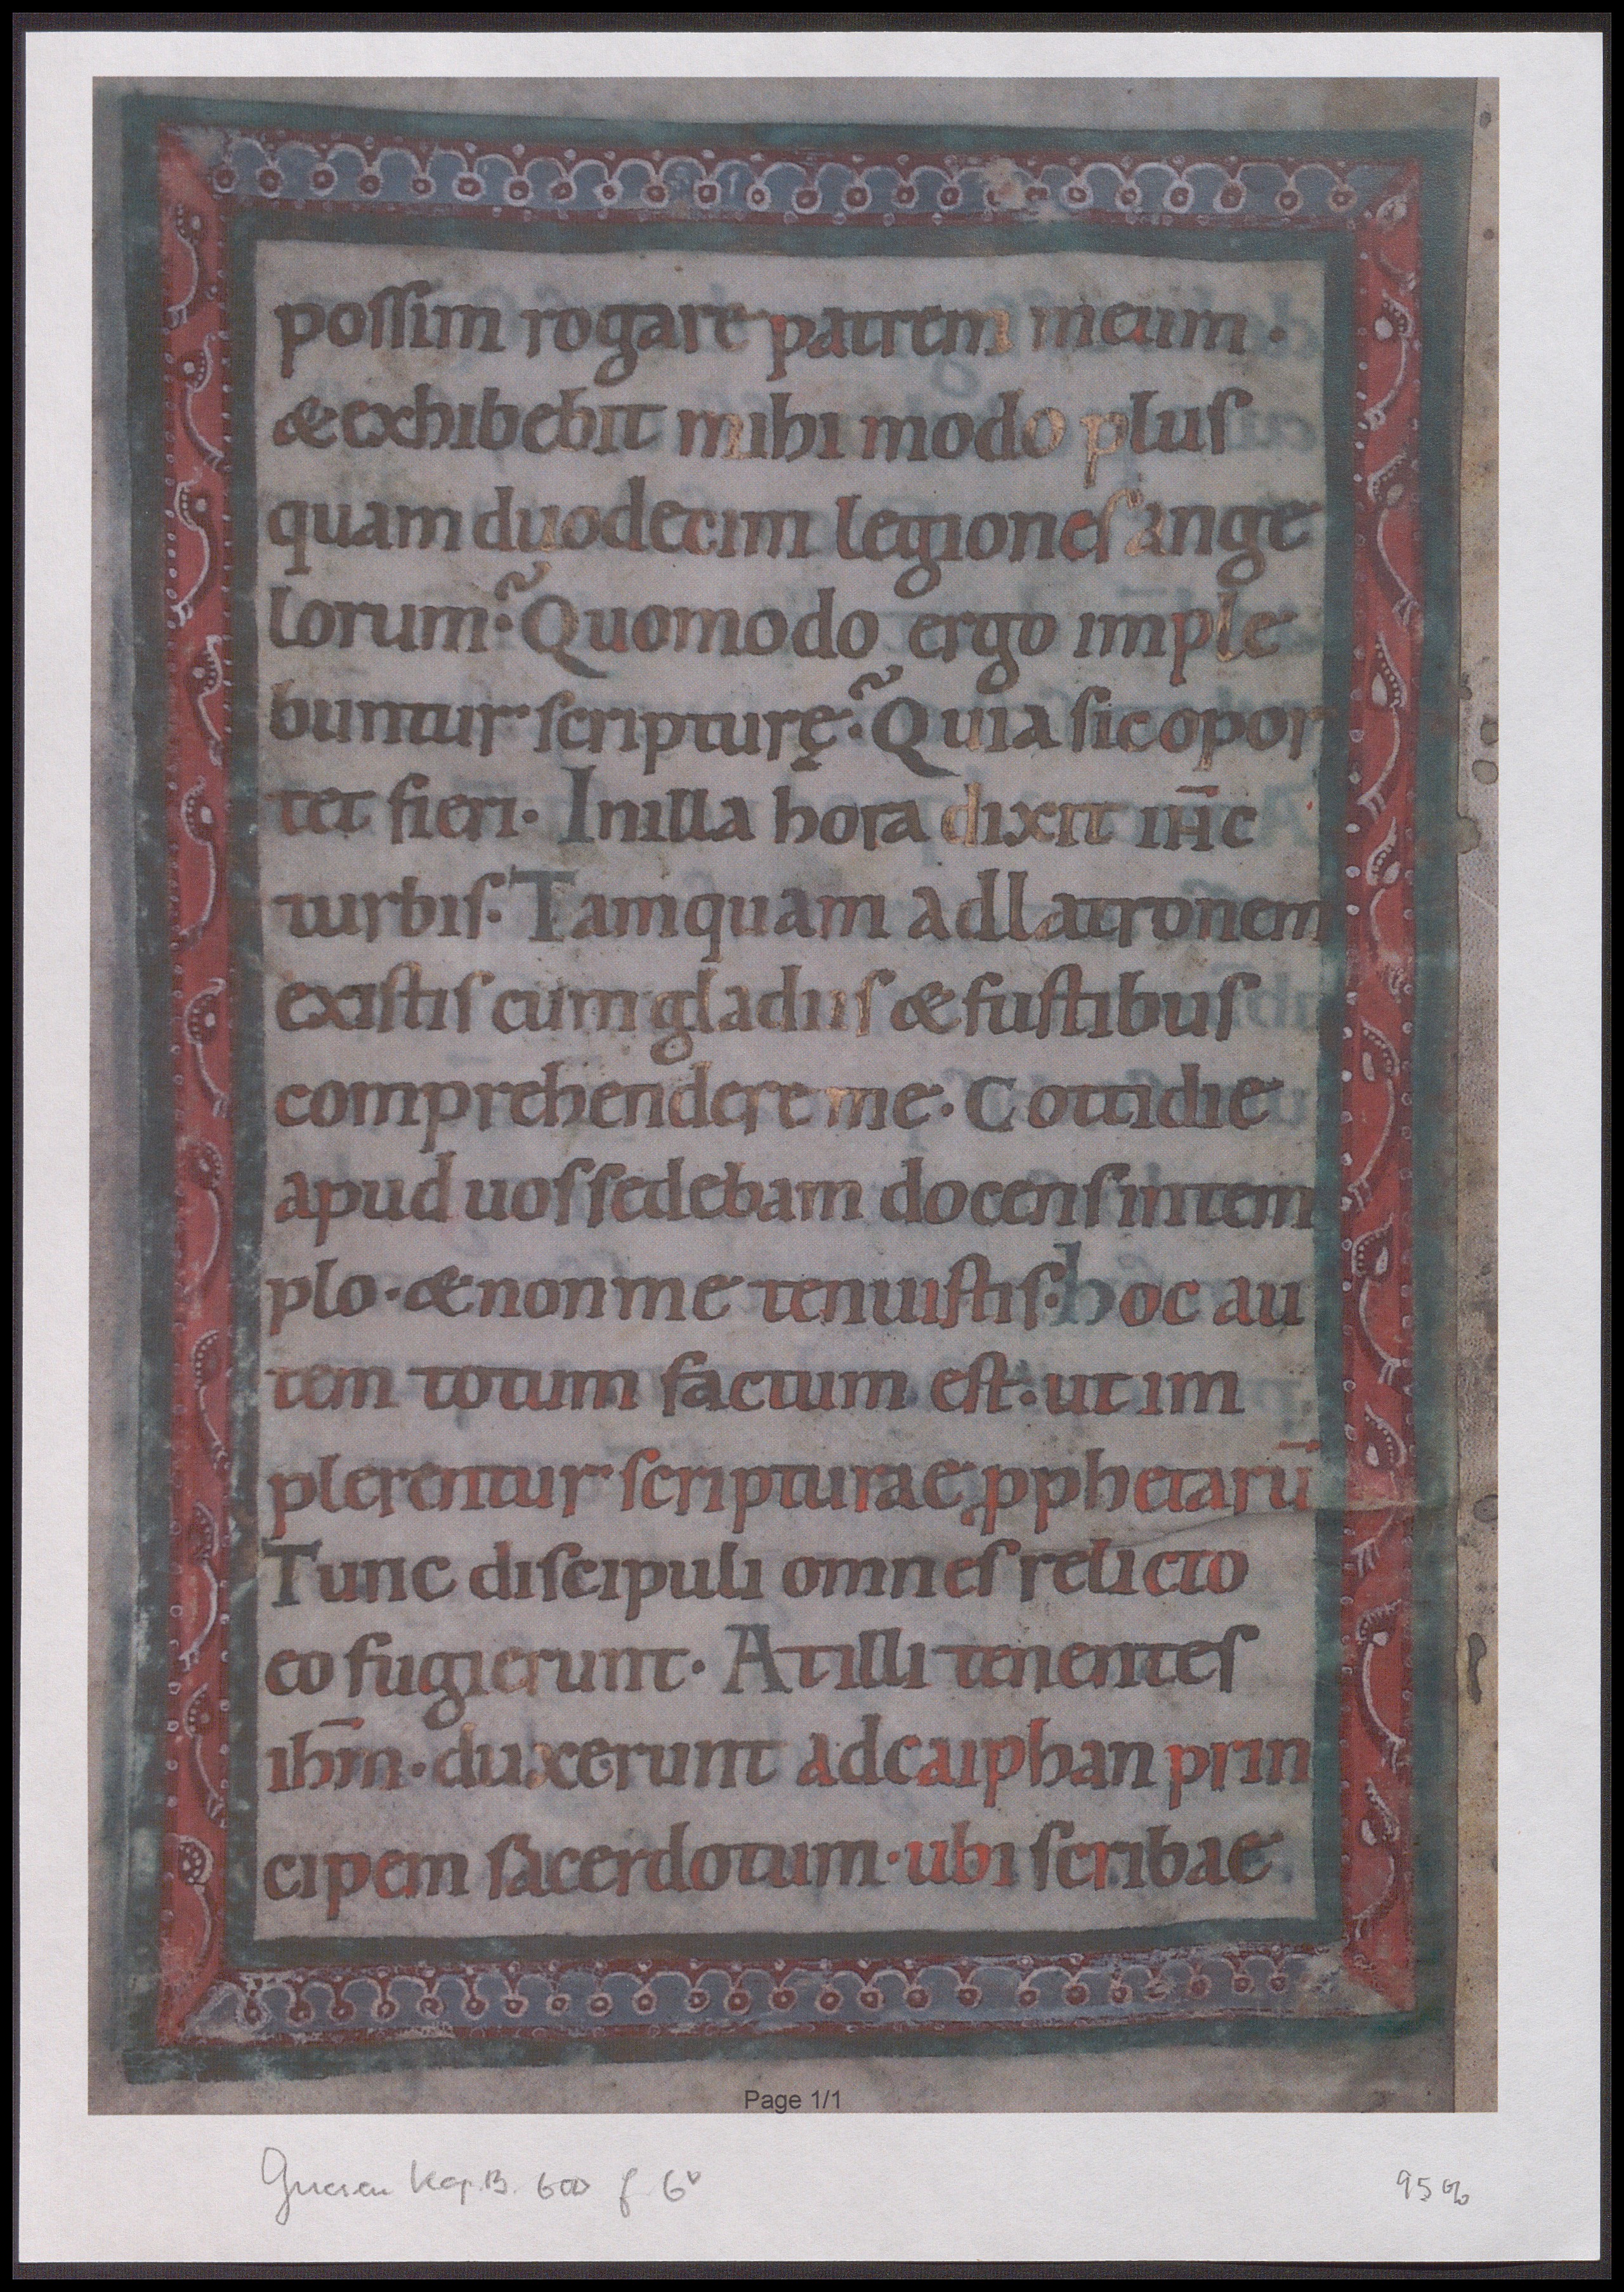 possim rogare patrem meum·
& exhibebit mihi modo plus
quam duodecim legiones ange
lorum? Quomodo ergo imple
buntur scripturę? Quia sic opor
tet fieri· In illa hora dixit ihc̄
turbis· Tamquam ad latronem
existis cum gladiis & fustibus
comprehendere me· Cottidie
apud uos sedebam docens in tem
plo· & non me tenuistis· hoc au
tem totum factum est· ut im
plerentur scripturae pphetarū
Tunc discipuli omnes relicto
eo fugierunt· At illi tenentes
ihm̄· duxerunt ad caiphan prin
cipem sacerdotum· ubi scribae
Page 1/1
Gnesen Kap.B. 600 f. 6v
95%